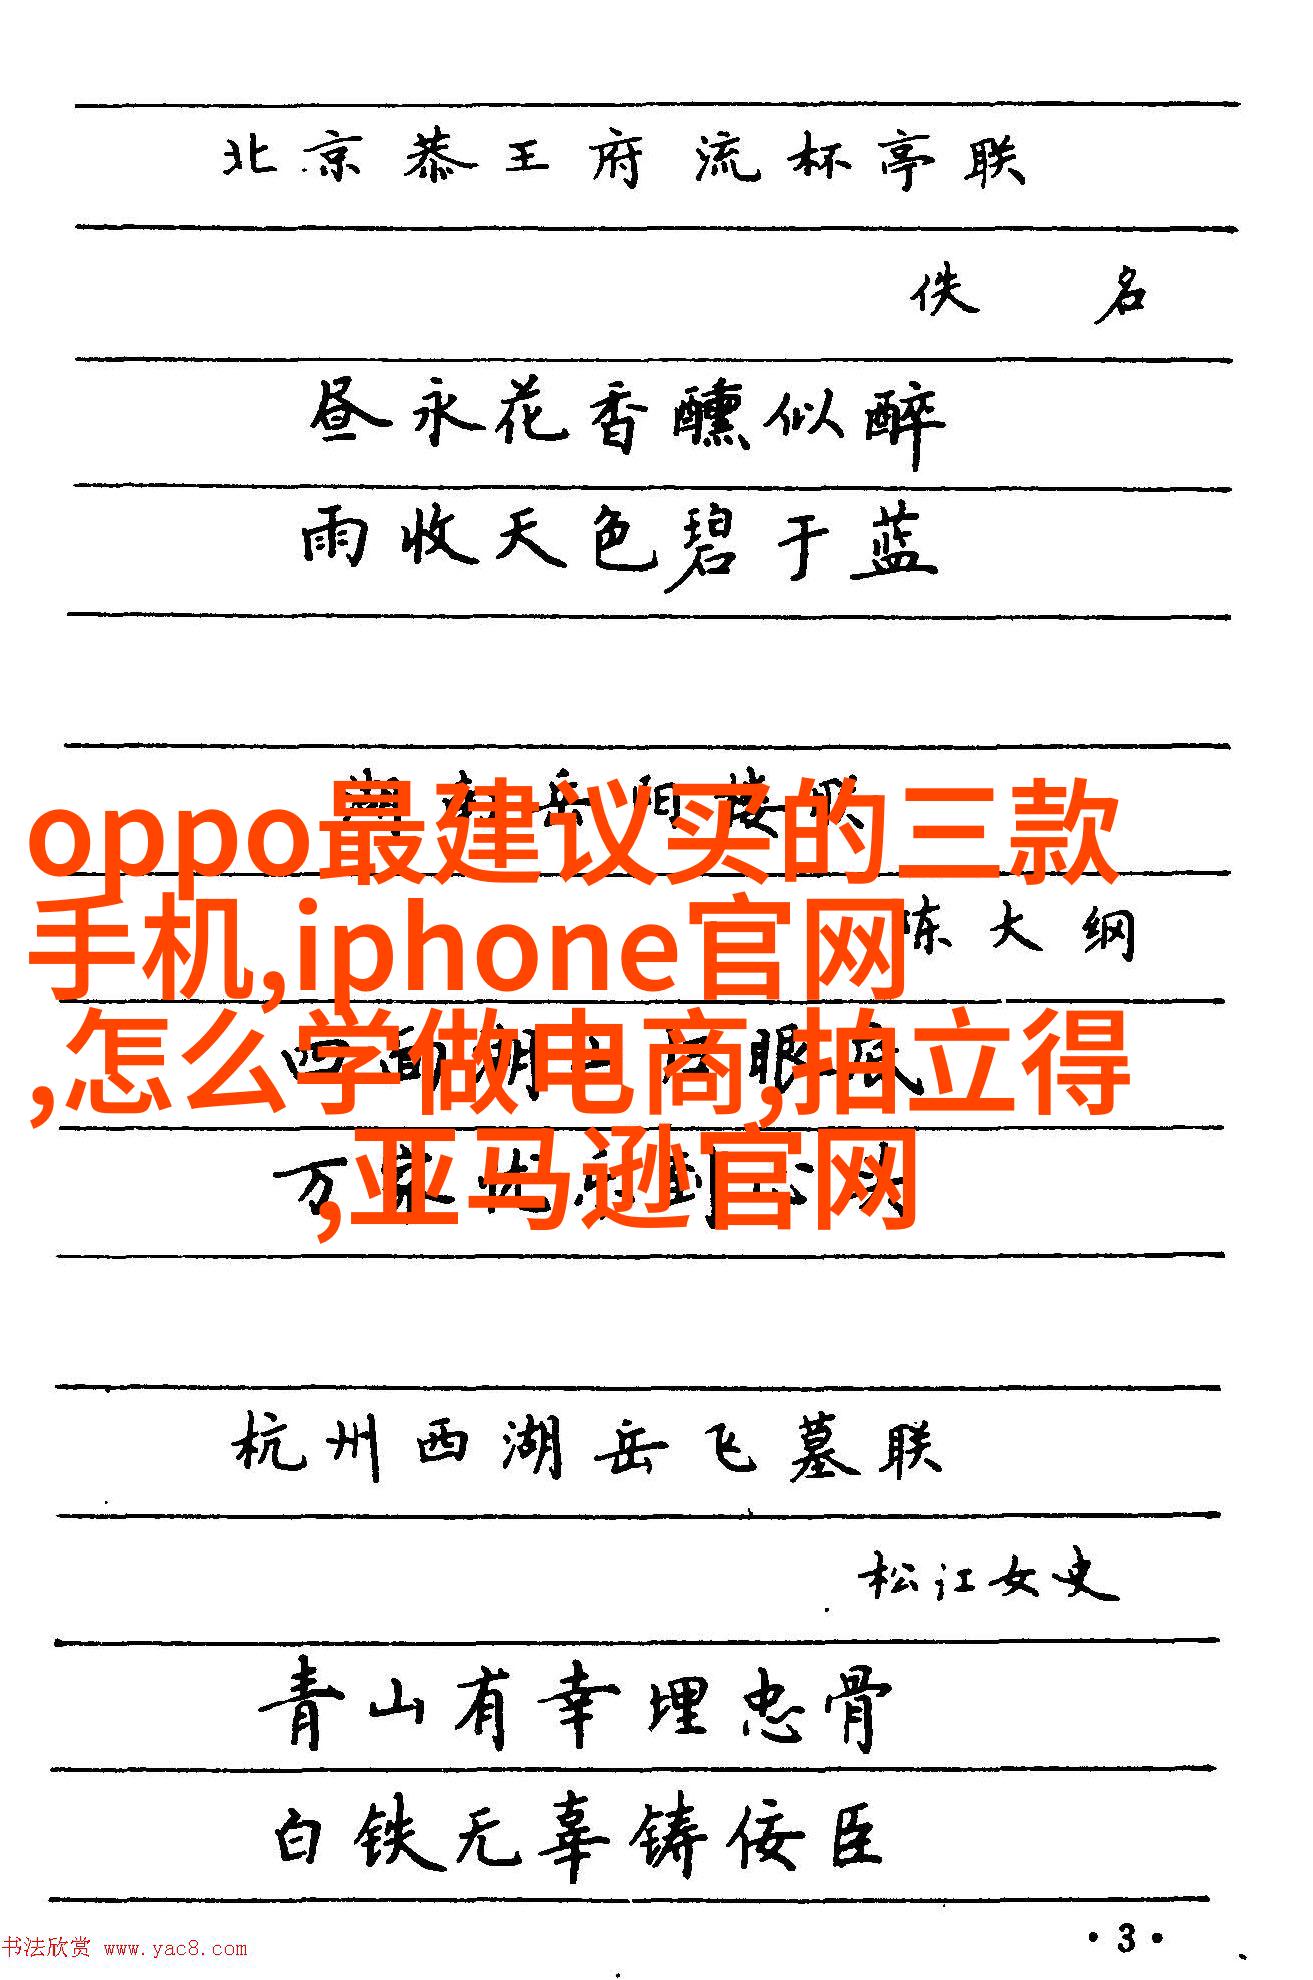 北京恭王府流杯亭联
佚名
昼永花香醺似醉
雨收天色碧于蓝
湖南岳阳楼联
oppo最建议买的三款
陈大纲
手机,iphone官网
四面湖山归眼底
,怎么学做电商,拍立得
万家忧乐到心头
,亚马逊官网
杭州西湖岳飞墓联
松江女史
青山有幸埋忠骨
白铁无辜铸佞臣
·3·
书法欣赏 www.yac8.com